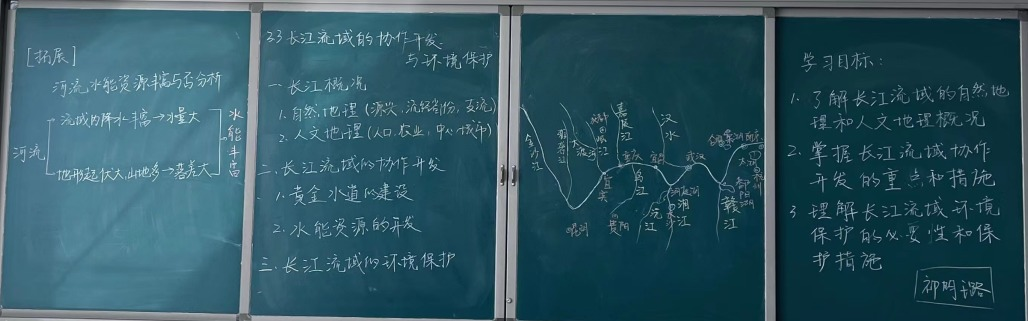 [拓展]
河流水能资源丰富与否分析
河流
流域的降水丰富→水量大
地形起伏大,山地多→落差大
水能丰富
2.3 长江流域的协作开发
与环境保护
一 长江概况
1. 自然地理(源头、流经省份、支流)
2. 人文地理(人口、农业、中心城市)
二、长江流域的协作开发
1. 黄金水道的建设
2. 水能资源的开发
三、长江流域的环境保护
金沙江
雅砻江
大渡河
岷江
嘉陵江
重庆
宜宾
乌江
贵阳
昆明
汉水
宜昌
武汉
洞庭湖
沅江
湘江
鄱阳湖
赣江
学习目标:
1. 了解长江流域的自然地
理和人文地理概况
2. 掌握长江流域协作
开发的重点和措施
3 理解长江流域环境
保护的必要性和保
护措施